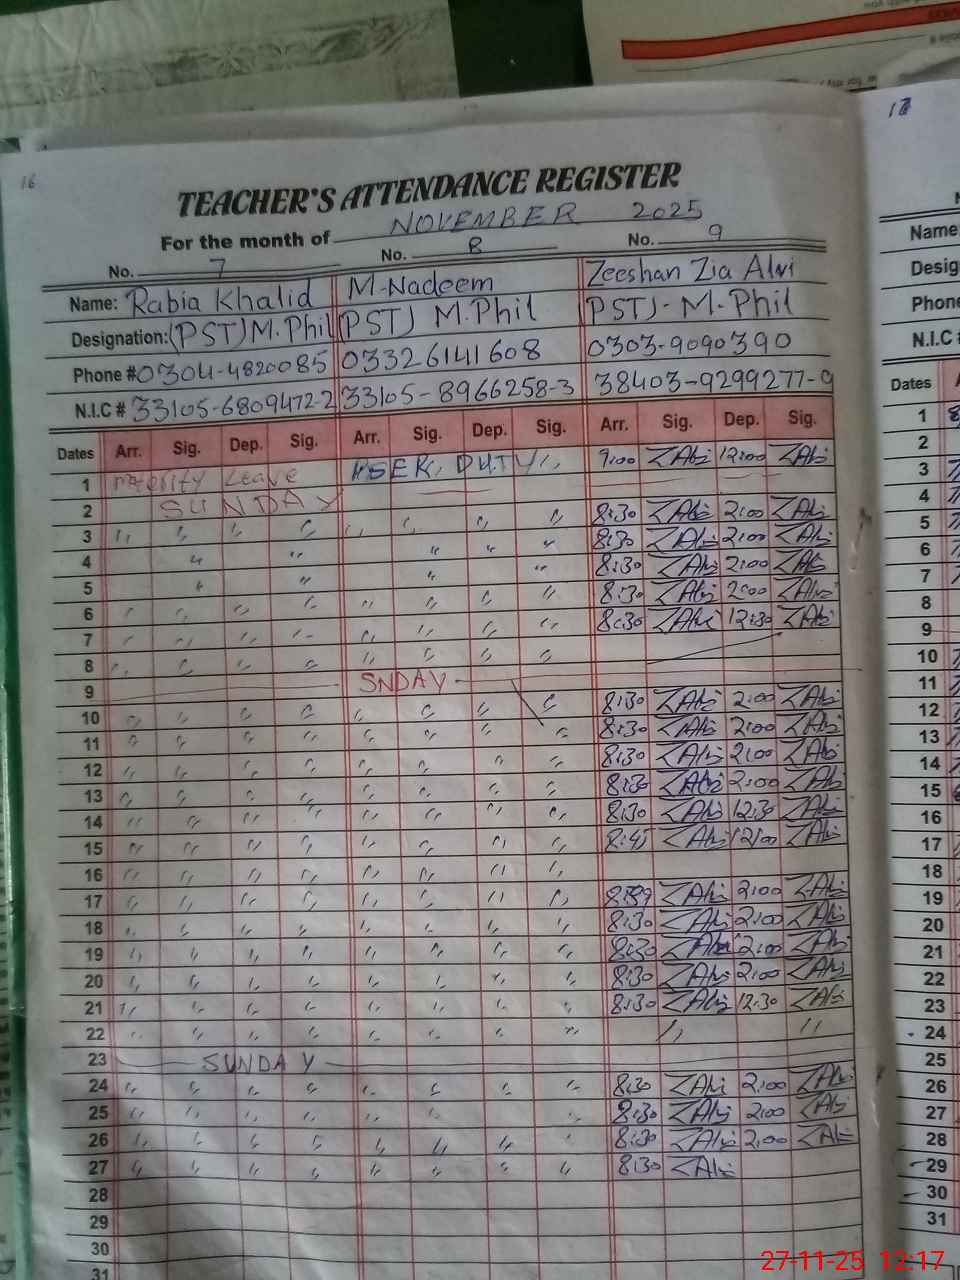 16
17
TEACHER'S ATTENDANCE REGISTER
For the month of NOVEMBER 2025
No. 7 No. 8 No. 9
Name: Rabia Khalid M-Nadeem Zeeshan Zia Alvi
Designation: (PST) M.Phil (PST) M.Phil (PST)-M-Phil
Phone # 0304-4820085 03326141608 0303-9090390
N.I.C # 33105-6809472-2 33105-8966258-3 38403-9299277-9
Dates Arr. Sig. Dep. Sig. Arr. Sig. Dep. Sig. Arr. Sig. Dep. Sig.
1 Leave DUTY 9:00 12:00
2 SUNDAY
3 8:30 2:00
4 8:30 2:00
5 8:30 2:00
6 8:30 2:00
7 8:30 12:30
8
9 SNDAY
10 8:30 2:00
11 8:30 2:00
12 8:30 2:00
13 8:30 2:00
14 8:30 12:30
15 8:45 12:00
16
17 2:00
18 8:30 2:00
19 8:30 2:00
20 8:30 2:00
21 8:30 12:30
22
23 SUNDAY
24 8:30 2:00
25 8:30 2:00
26 8:30 2:00
27 8:30
28
29
30
31
Name:
Phone
N.I.C
Dates
1
2
3
4
5
6
7
8
9
10
11
12
13
14
15
16
17
18
19
20
21
22
23
24
25
26
27
28
29
30
31
27-11-25 12:17